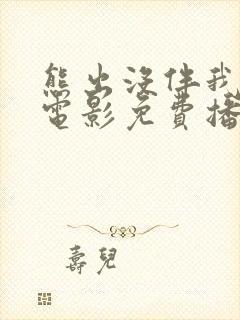 熊出没伴我
電影免費播
壽兒